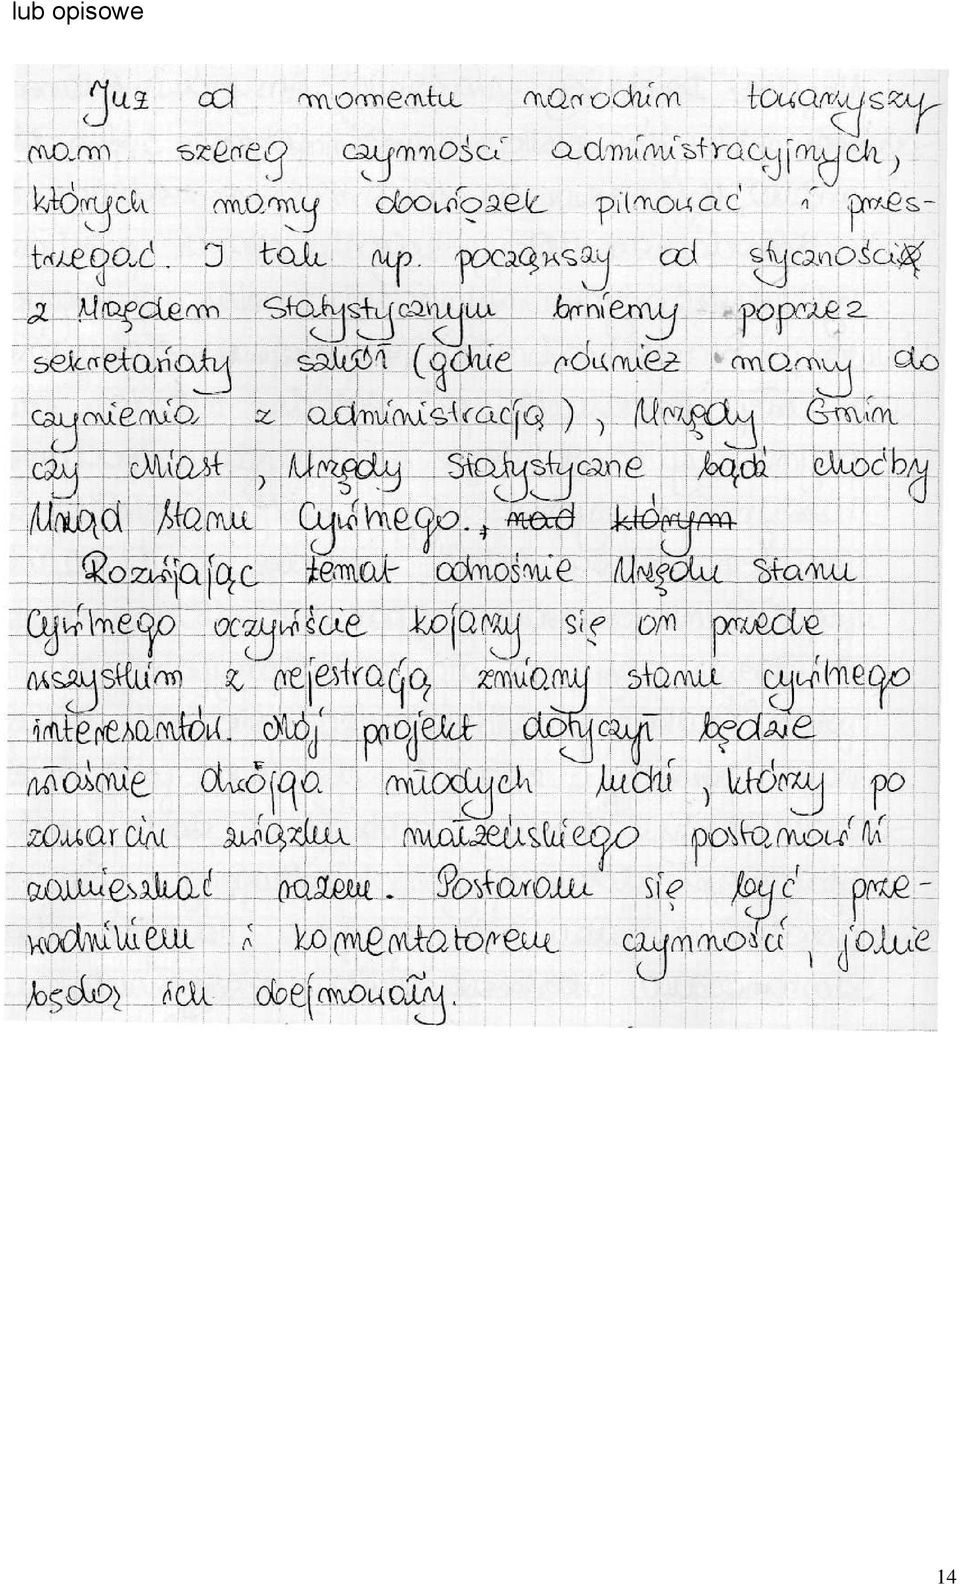 lub opisowe
Już od momentu narodzin towarzyszy
nam szereg czynności administracyjnych,
których mamy obowiązek pilnować i przes-
trzegać. I tak np. począwszy od styczności
z Urzędem Statystycznym brniemy poprzez
sekretariaty szkół (gdzie również mamy do
czynienia z administracją), Urzędy Gmin
czy Miast, Urzędy Statystyczne bądź choćby
Urząd Stanu Cywilnego., nad którym
Rozwijając temat odnośnie Urzędu Stanu
Cywilnego oczywiście kojarzy się on przede
wszystkim z rejestracją zmiany stanu cywilnego
interesantów. Mój projekt dotyczył będzie
właśnie dwójga młodych ludzi, którzy po
zawarciu związku małżeńskiego postanowili
zamieszkać razem. Postaram się być prze-
wodnikiem i komentatorem czynności, jakie
będą ich obejmowały.
14